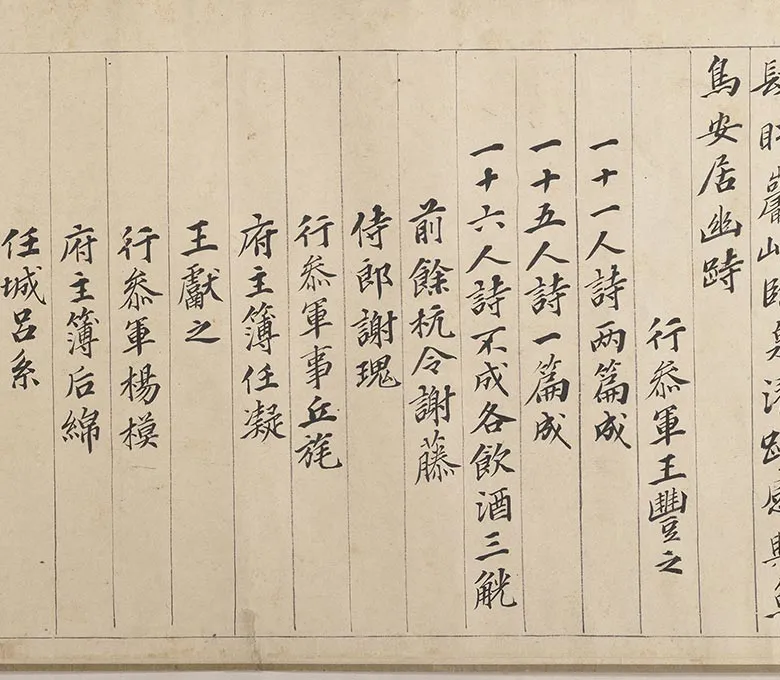 肆眄巖岫臨泉濯趾感興魚
鳥安居幽跱
行叅軍王豐之
一十一人詩两篇成
一十五人詩一篇成
一十六人詩不成各飲酒三觥
前餘杭令謝藤
侍郎謝瑰
行叅軍事丘旄
府主簿任凝
王獻之
行叅軍楊模
府主簿后綿
任城呂系